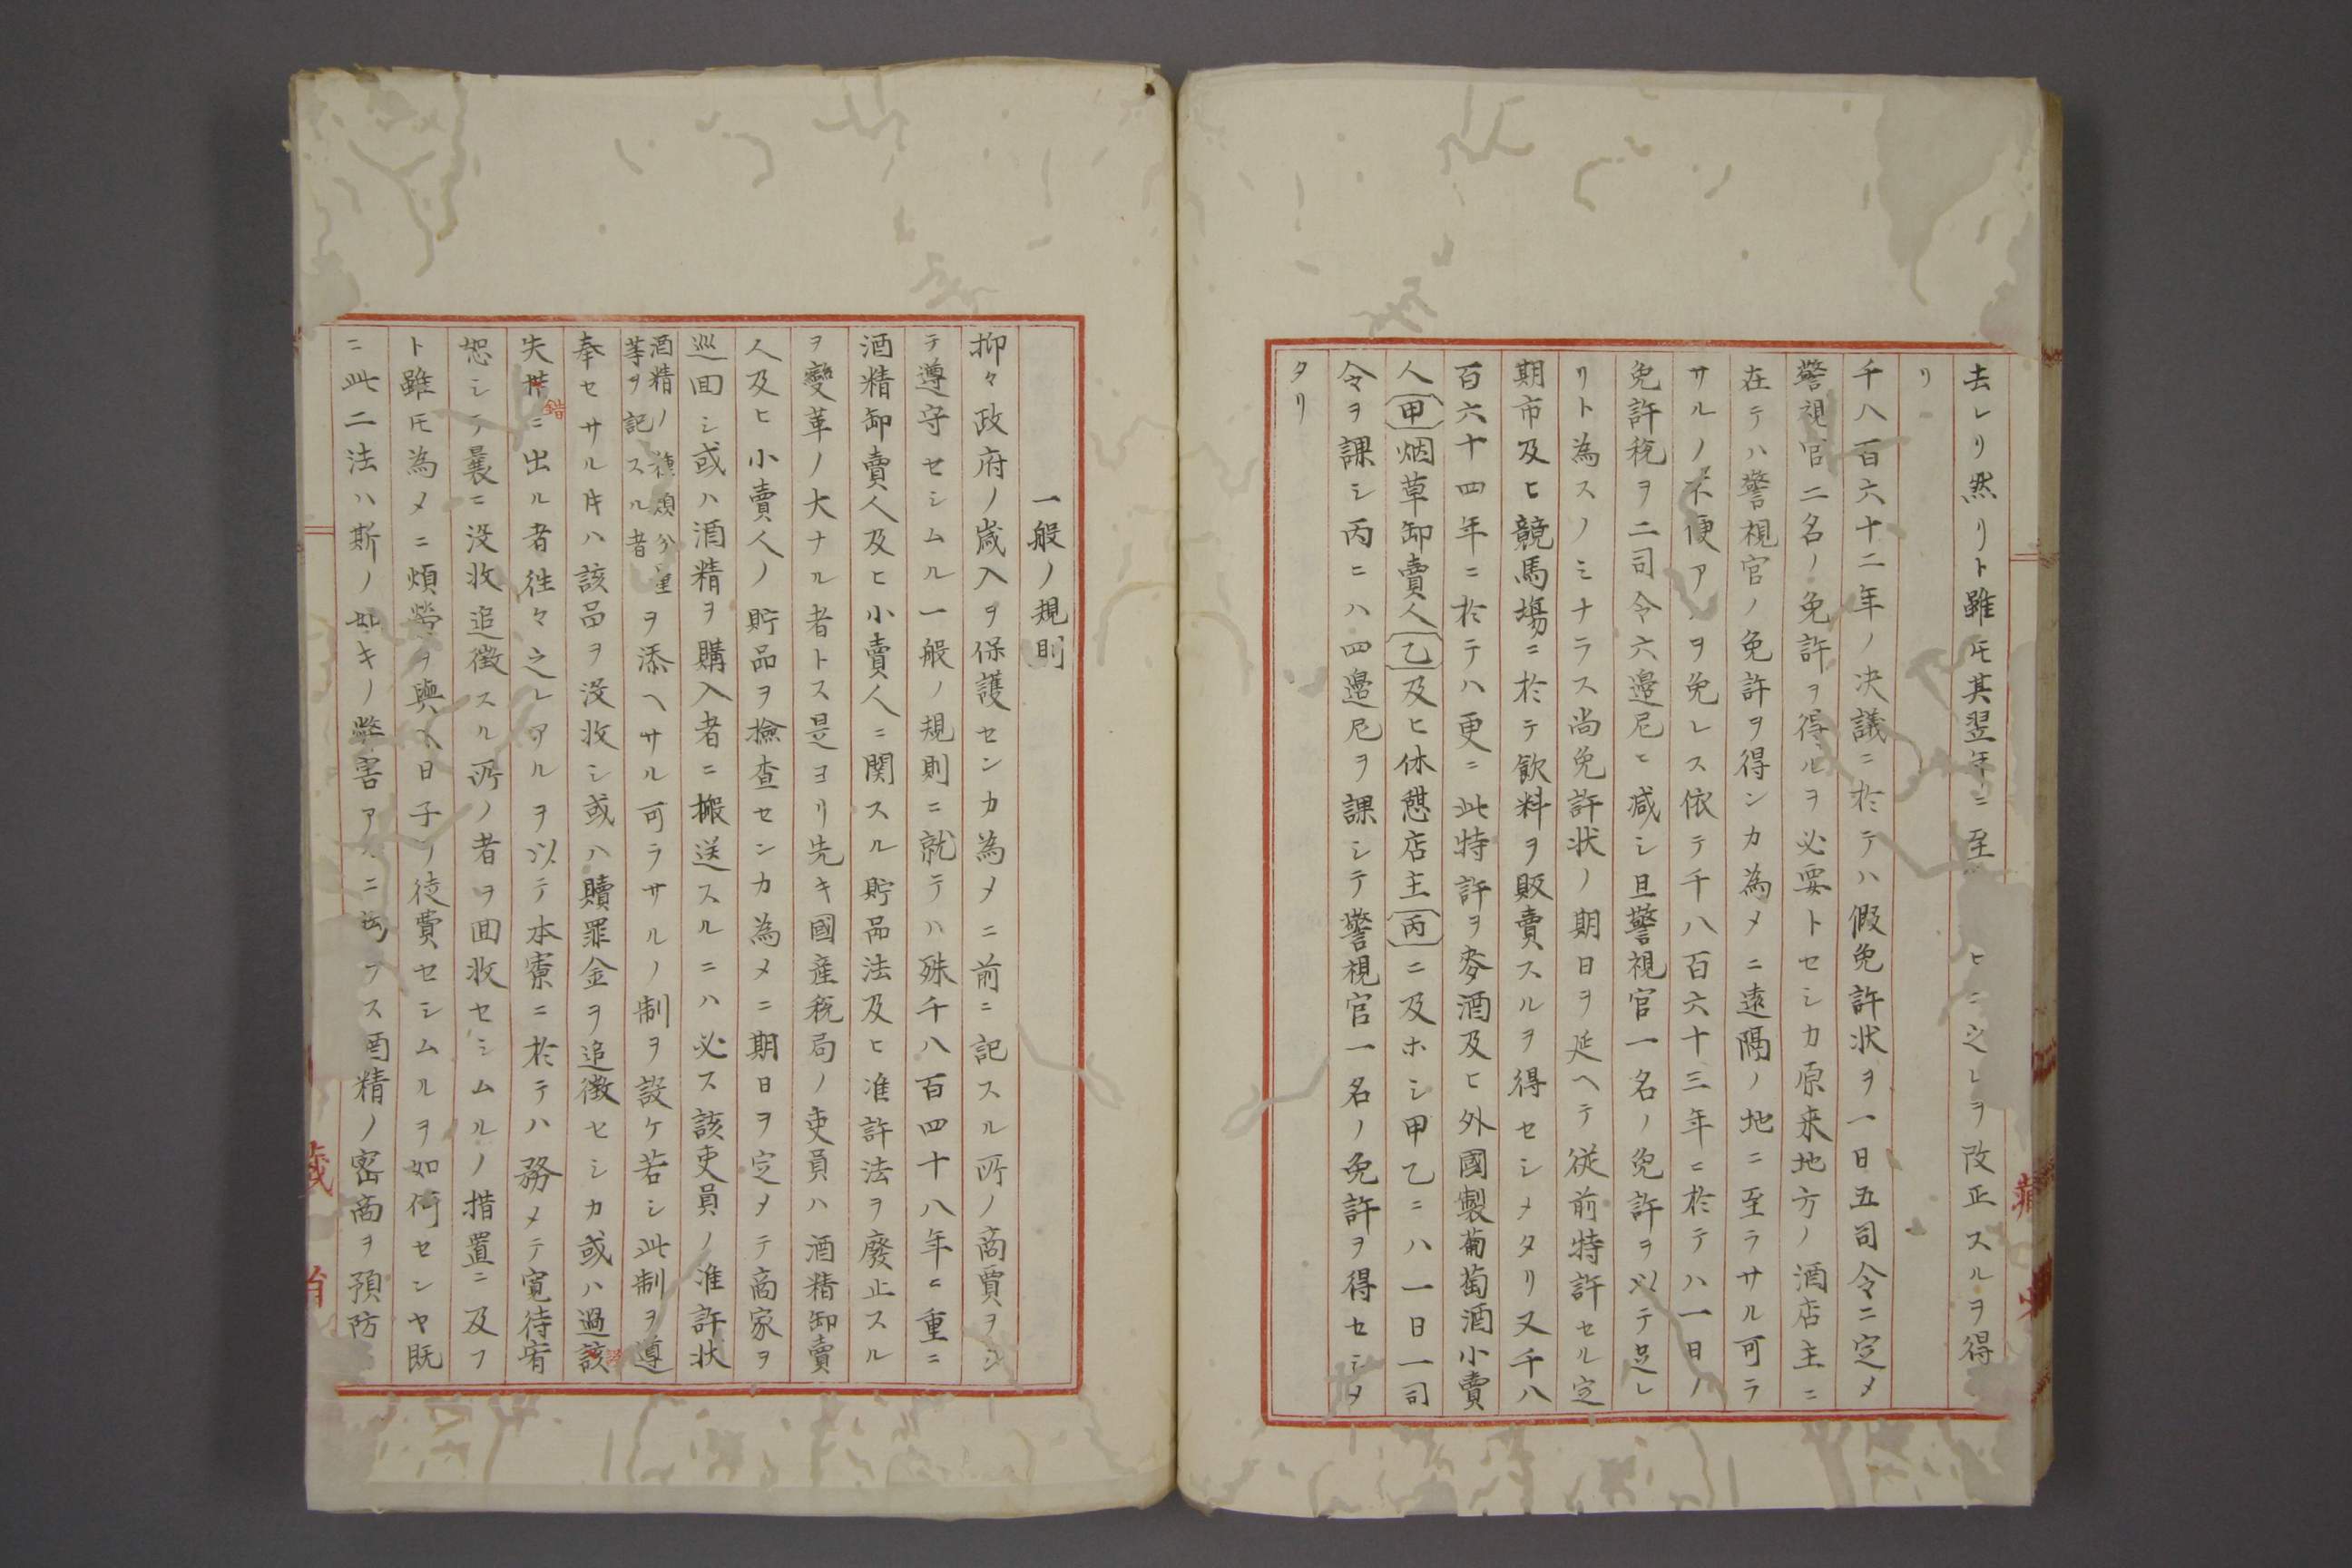 去レリ然リト雖𪜈其翌年ニ至 ヒニ之レヲ改正スルヲ得
リ
千八百六十二年ノ決議ニ於テハ假免許状ヲ一日五司令ニ定メ
警視官二名ノ免許ヲ得ルヲ必要トセシカ原来地方ノ酒店主ニ
在テハ警視官ノ免許ヲ得ンカ為メニ遠隔ノ地ニ至ラサル可ラ
サルノ不便アヲ免レス依テ千八百六十三年ニ於テハ一日ノ
免許税ヲ二司令六邊尼ヒ減シ旦警視官一名ノ免許ヲ以テ足レ
リト為スノミナラス尚免許状ノ期日ヲ延ヘテ従前特許セル定
期市及ヒ競馬塲ニ於テ飲料ヲ販賣スルヲ得セシメタリ又千八
百六十四年ニ於テハ更ニ此特許ヲ麥酒及ヒ外國製葡萄酒小賣
人(甲)烟草卸賣人(乙)及ヒ休憇店主(丙)ニ及ホシ甲乙ニハ一日一司
令ヲ課シ丙ニハ四邊尼ヲ課シテ警視官一名ノ免許ヲ得セシメ
タリ
一般ノ規則
抑々政府ノ歳入ヲ保護センカ為メニ前ニ記スル所ノ商賈ヲシ
テ遵守セシムル一般ノ規則ニ就テハ殊千八百四十八年ニ重ニ
酒精卸賣人及ヒ小賣人ニ関スル貯品法及ヒ准許法ヲ廢止スル
ヲ變革ノ大ナル者トス是ヨリ先キ國産税局ノ吏員ハ酒精卸賣
人及ヒ小賣人ノ貯品ヲ撿査センカ為メニ期日ヲ定メテ商家ヲ
巡回シ或ハ酒精ヲ購入者ニ搬送スルニハ必ス該吏員ノ准許状
酒精ノ種類分量
等ヲ記スル者
ヲ添ヘサル可ラサルノ制ヲ設ケ若シ此制ヲ遵
奉セサル片ハ該品ヲ没收シ或ハ贖罪金ヲ追徴セシカ或ハ過該
失措ニ出ル者往々之レアルヲ以テ本寮ニ於テハ務メテ寛待宥
錯
恕シテ曩ニ没收追徴スル所ノ者ヲ回收セシムルノ措置ニ及フ
ト雖𪜈為メニ煩勞ヲ與ヘ日子ノ徒費セシムルヲ如何センヤ既
ニ此二法ハ斯ノ如キノ弊害アニス酒精ノ密商ヲ預防